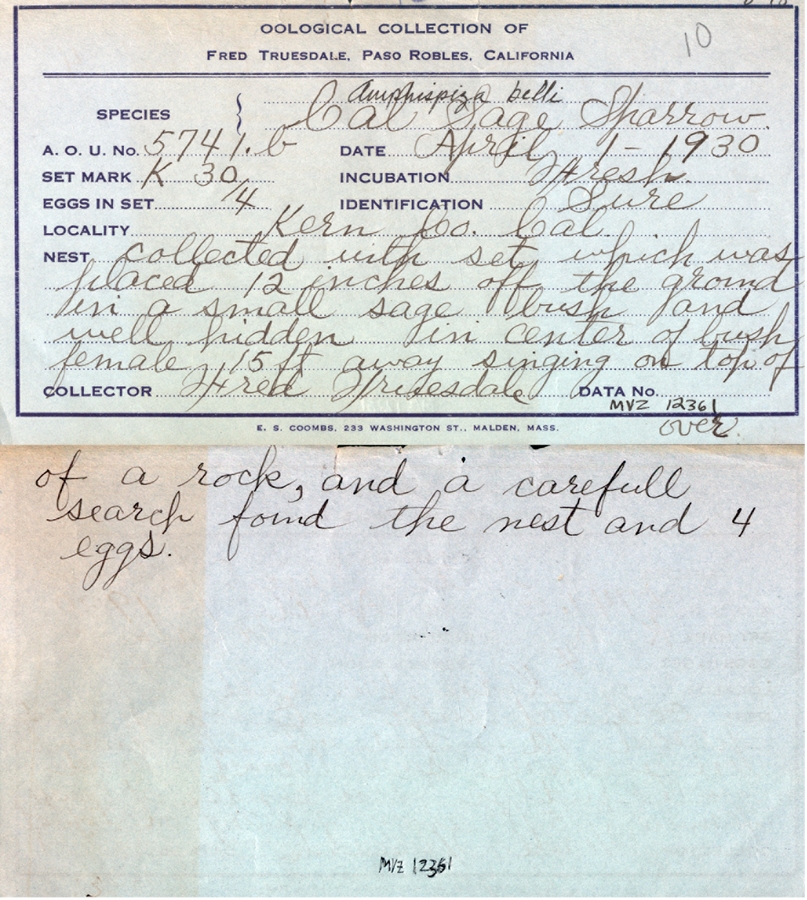 OOLOGICAL COLLECTION OF
10
FRED TRUESDALE, PASO ROBLES, CALIFORNIA
Amphispiza belli
SPECIES } Cal Sage Sparrow.
A. O. U. No. 5741.b DATE April 1 - 1930
SET MARK K 30 INCUBATION Fresh.
EGGS IN SET 4 IDENTIFICATION Sure
LOCALITY Kern Co. Cal.
NEST collected with set which was
placed 12 inches off the ground
in a small sage bush and
well hidden in center of bush
female 15 ft away singing on top of
COLLECTOR Fred Truesdale DATA No.
MVZ 12361
E. S. COOMBS, 233 WASHINGTON ST., MALDEN, MASS.
over
of a rock, and a carefull
search found the nest and 4
eggs.
MVZ 12361